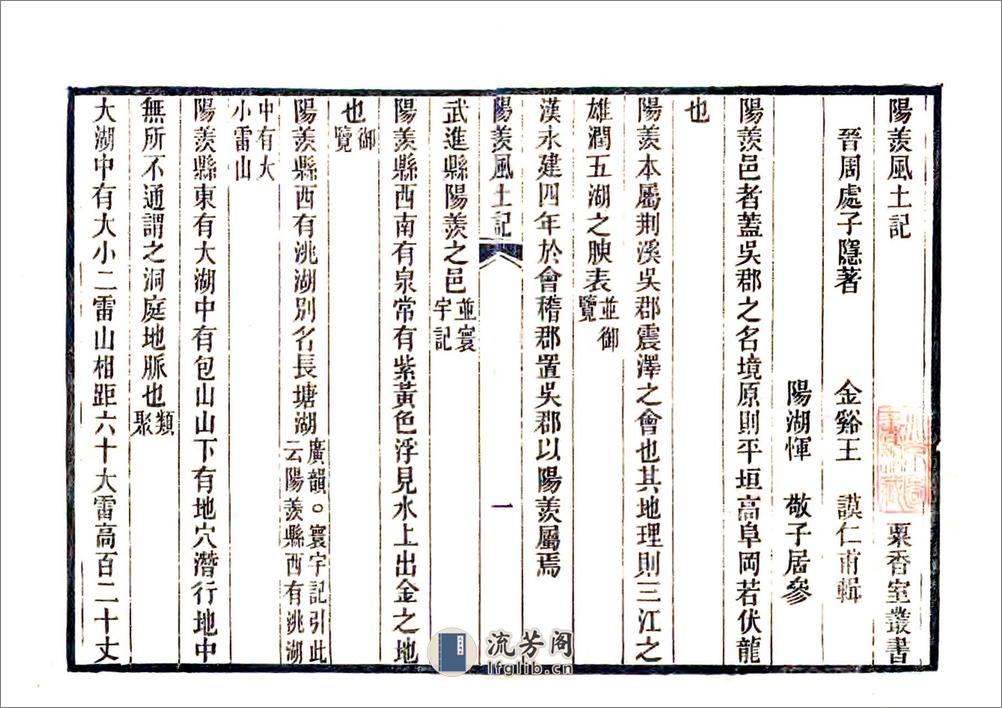 陽羨風土記　粟香室叢書
晉周處子隱著　金谿王　謨仁甫輯
陽湖惲　敬子居參
陽羨邑者蓋吳郡之名境原則平垣高阜岡若伏龍
也
陽羨本屬荆溪吳郡震澤之會也其地理則三江之
雄潤五湖之腴表並御覽
漢永建四年於會稽郡置吳郡以陽羨屬焉
陽羨風土記　一
武進縣陽羨之邑並寰宇記
陽羨縣西南有泉常有紫黃色浮見水上出金之地
也御覽
陽羨縣西有洮湖別名長塘湖廣韻。寰宇記引此云陽羨縣西有洮湖
中有大小雷山
陽羨縣東有大湖中有包山山下有地穴潛行地中
無所不通謂之洞庭地脈也類聚
大湖中有大小二雷山相距六十大雷高百二十丈
流芳阁
lfglib.cn